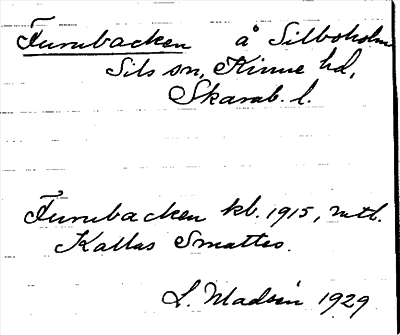 Furubacken å Silboholm
Sils sn, Kinne hd,
Skarab. l.
Furubacken kb. 1915, mtl.
Kallas Smattes.
L. Madsén 1929